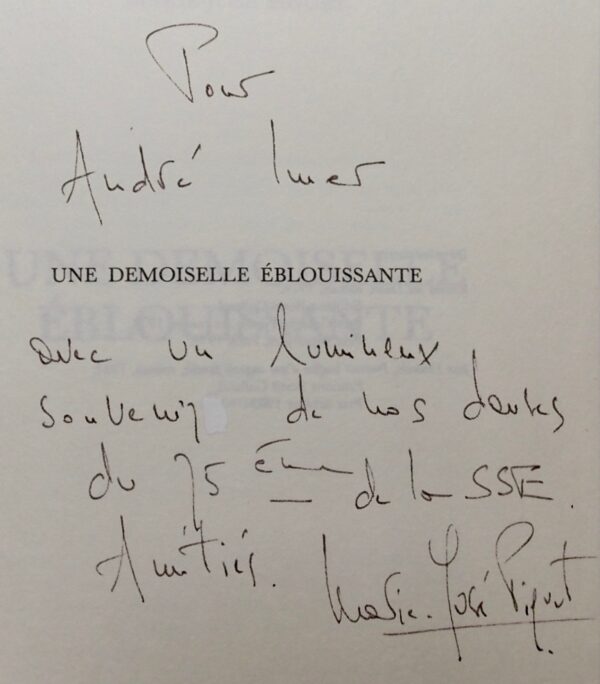 Pour
André Imer
UNE DEMOISELLE ÉBLOUISSANTE
avec un lumineux
souvenir de nos
du 75 ème de la SSE.
Amitiés. Marie-José Piguet